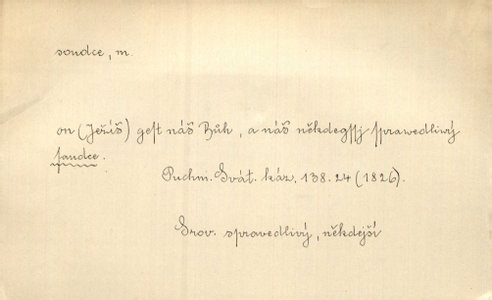 soudce, m.
on (Ježíš) gest náš Bůh, a náš někdegssj sprawedliwý
saudce.
Puchm. Svát. káz. 138.24 (1826).
Srov. spravedlivý, někdejší